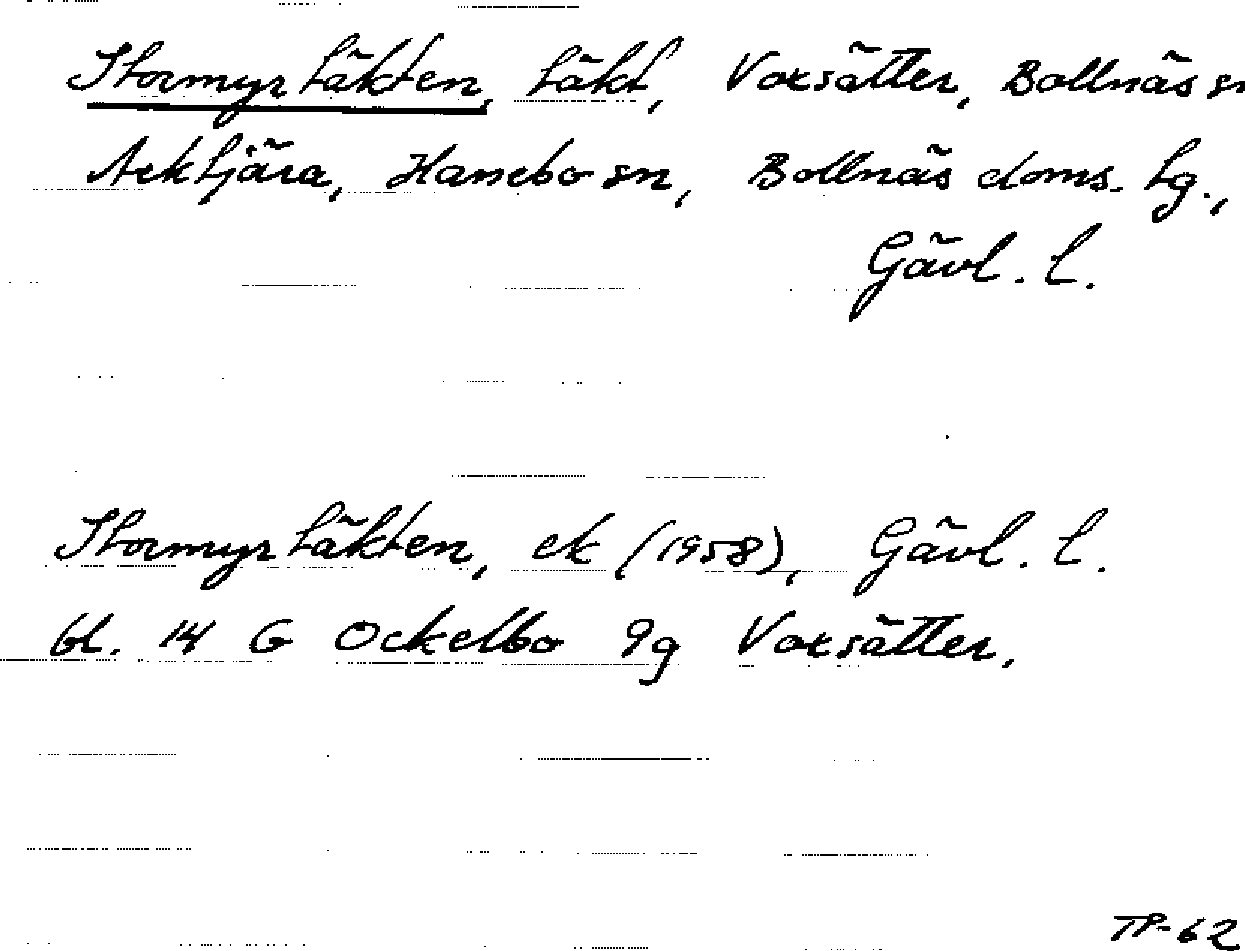 Stormyrtäkten, täkt, Voxsätter, Bollnäs sn
Acktjära, Hanebo sn, Bollnäs doms. tg.,
Gävl. l.
Stormyrtäkten, ek (1958), Gävl. l.
bl. 14 G Ockelbo 9g Voxsätter.
TP-62